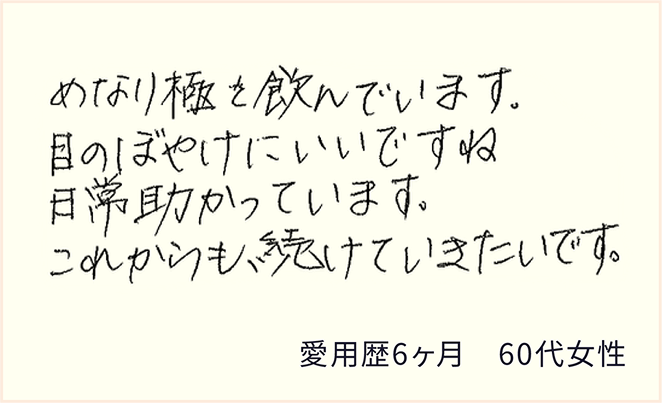 めなり極を飲んでいます。
目のぼやけにいいですね
日常助かっています。
これからも、続けていきたいです。
愛用歴6ヶ月　60代女性